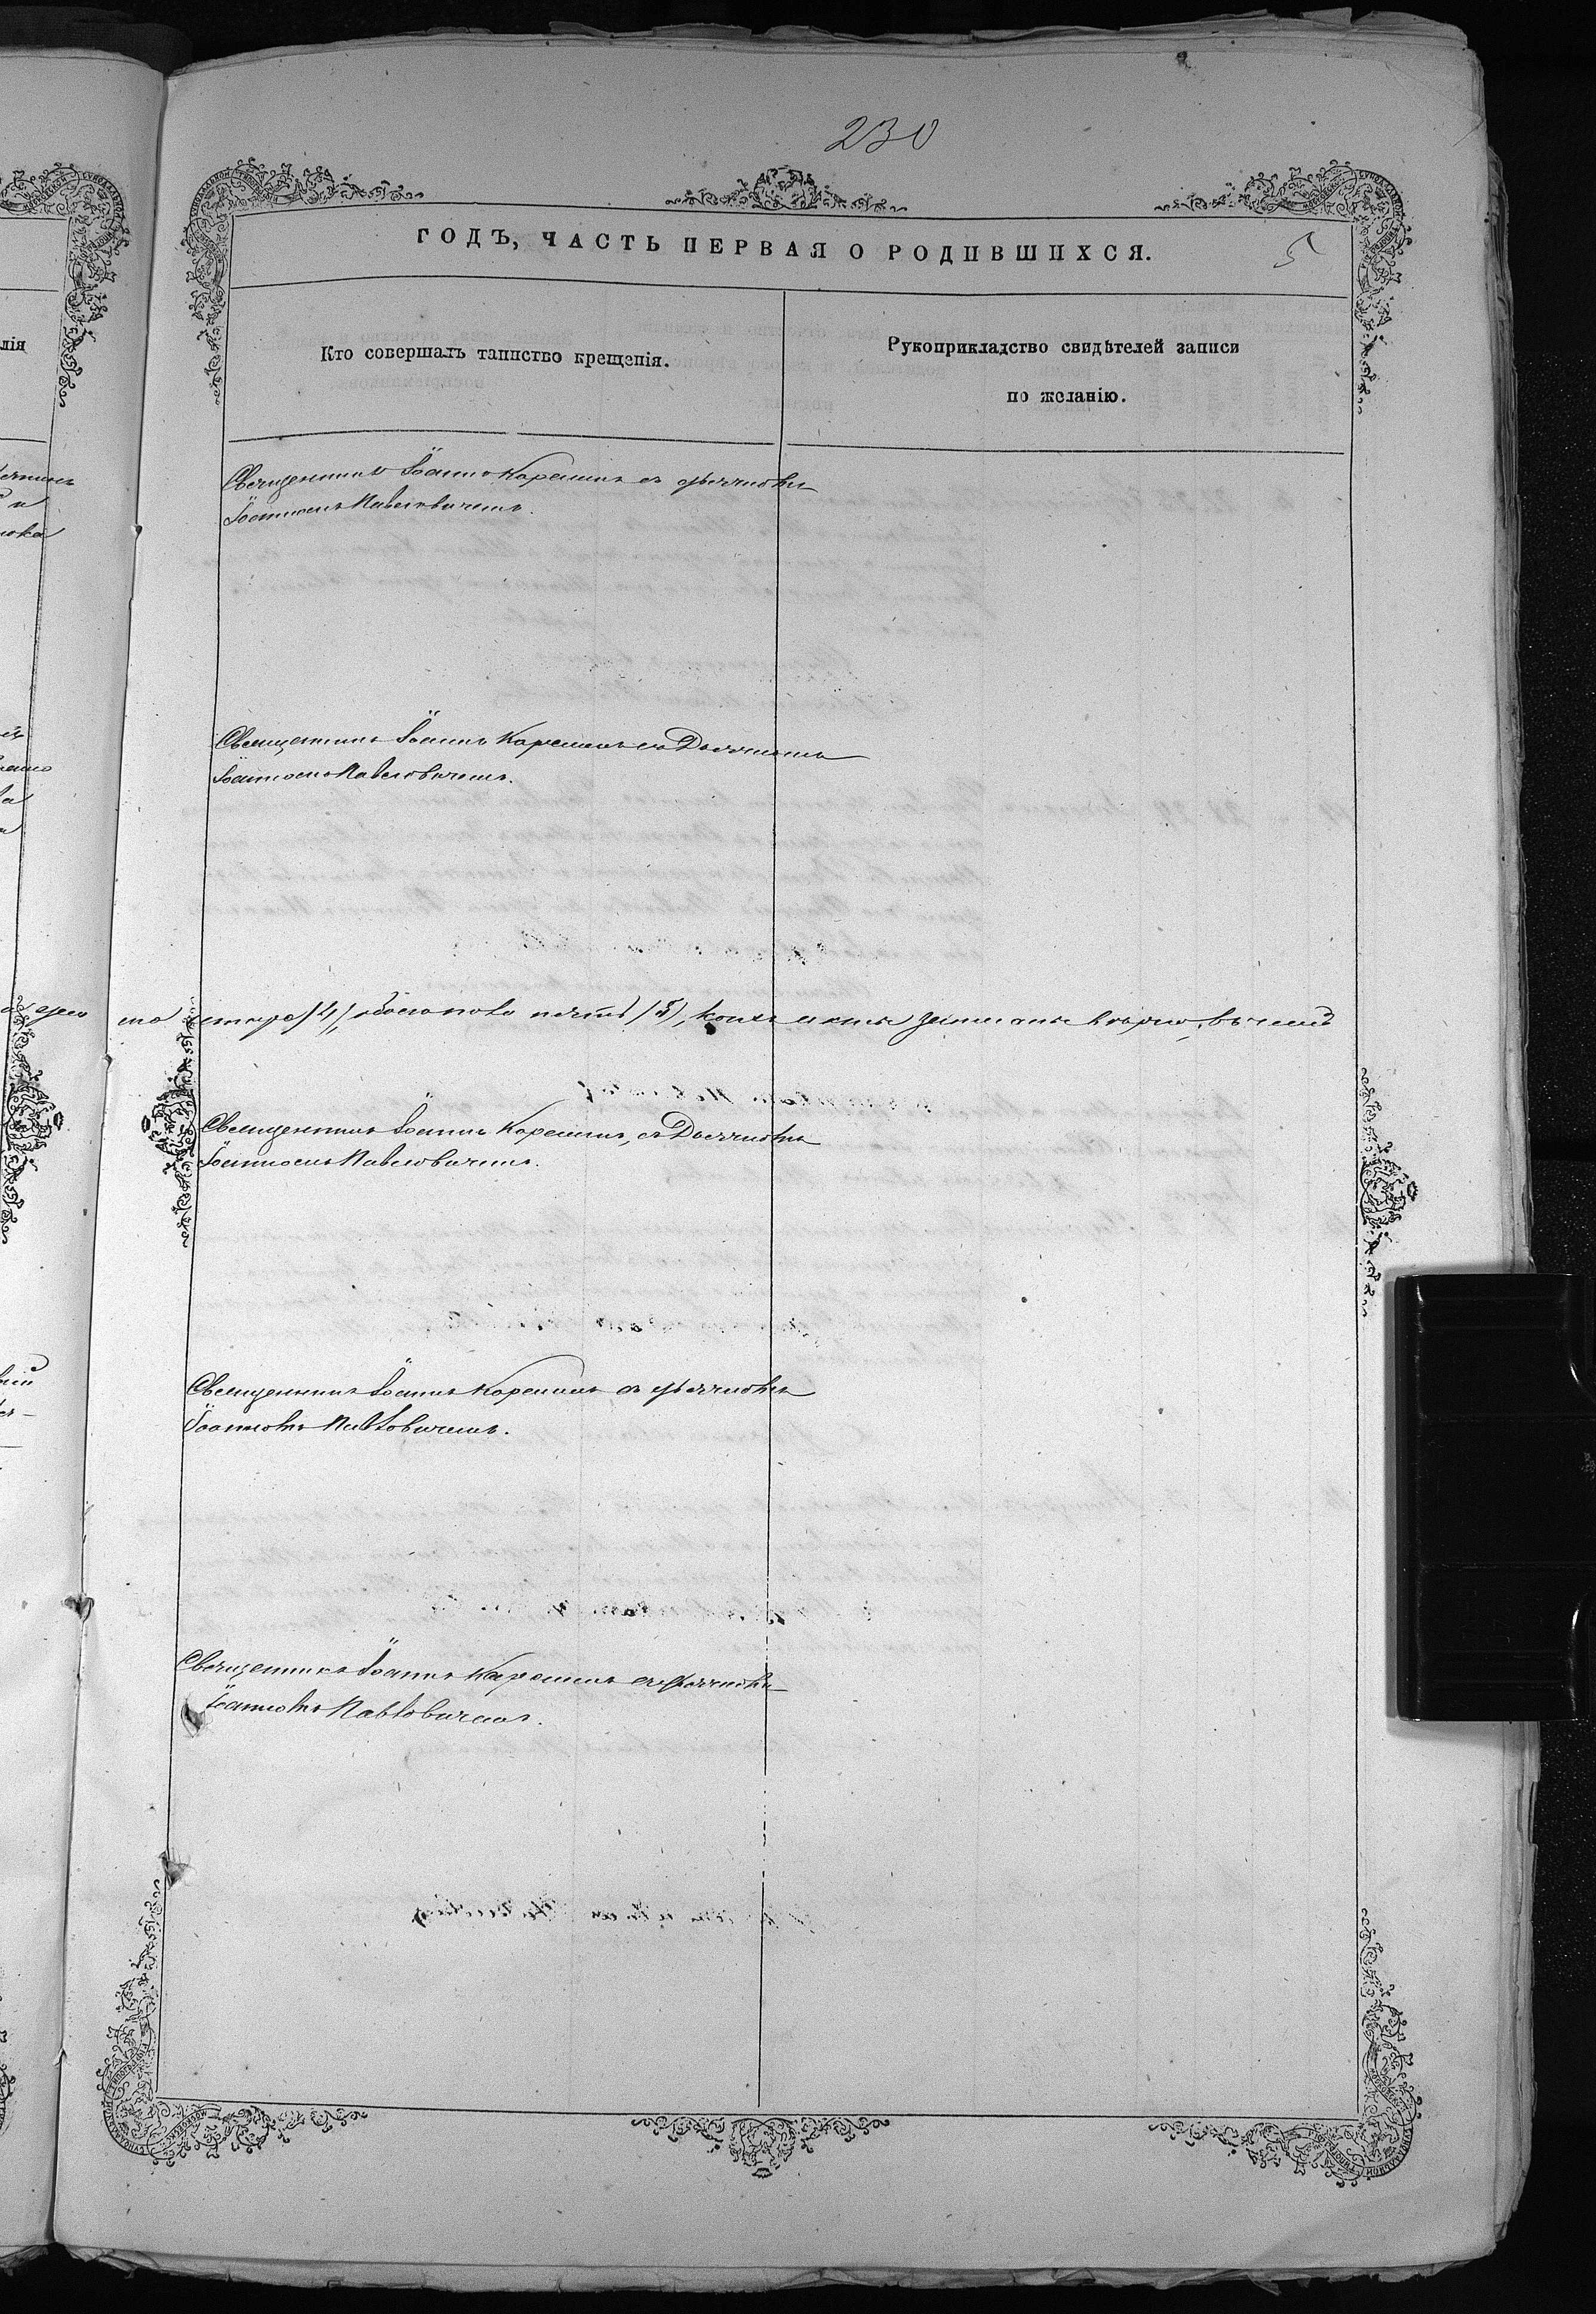 230
ГОДЪ, ЧАСТЬ ПЕРВАЯ О РОДИВШИХСЯ.
5
Кто совершалъ таинство крещенія.
Рукоприкладство свидѣтелей записи
по желанію.
Священникъ Іоаннъ Карашъ съ дьячкомъ
Іоанномъ Павловичемъ.
Священникъ Іоаннъ Карашъ съ Дьячкомъ
Іоанномъ Павловичемъ.
четыре (4), обоего пола пять (5), коихъ акты записаны вѣрно, въ чемъ
Священникъ Іоаннъ Карашъ, съ Дьячкомъ
Іоанномъ Павловичемъ.
Священникъ Іоаннъ Карашъ съ дьячкомъ
Іоанномъ Павловичемъ.
Священникъ Іоаннъ Карашъ съ дьячкомъ
Іоанномъ Павловичемъ.